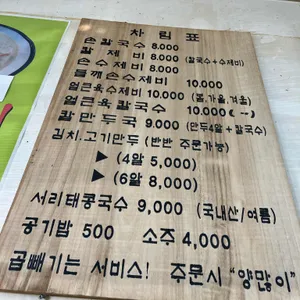 차림표
손칼국수 8.000
칼제비 8.000 (칼국수+수제비)
손수제비 8.000
들깨손수제비 10.000
얼큰육수제비 10.000 (봄,가을,겨울)
얼큰육칼국수 10.000 (〃)
칼만두국 9.000 (만두4알 + 칼국수)
김치.고기만두 (반반 주문가능)
▶ (4알 5,000)
▶ (6알 8,000)
서리태콩국수 9,000 (국내산/여름)
공기밥 500 소주 4,000
곱빼기는 서비스! 주문시 "양많이"